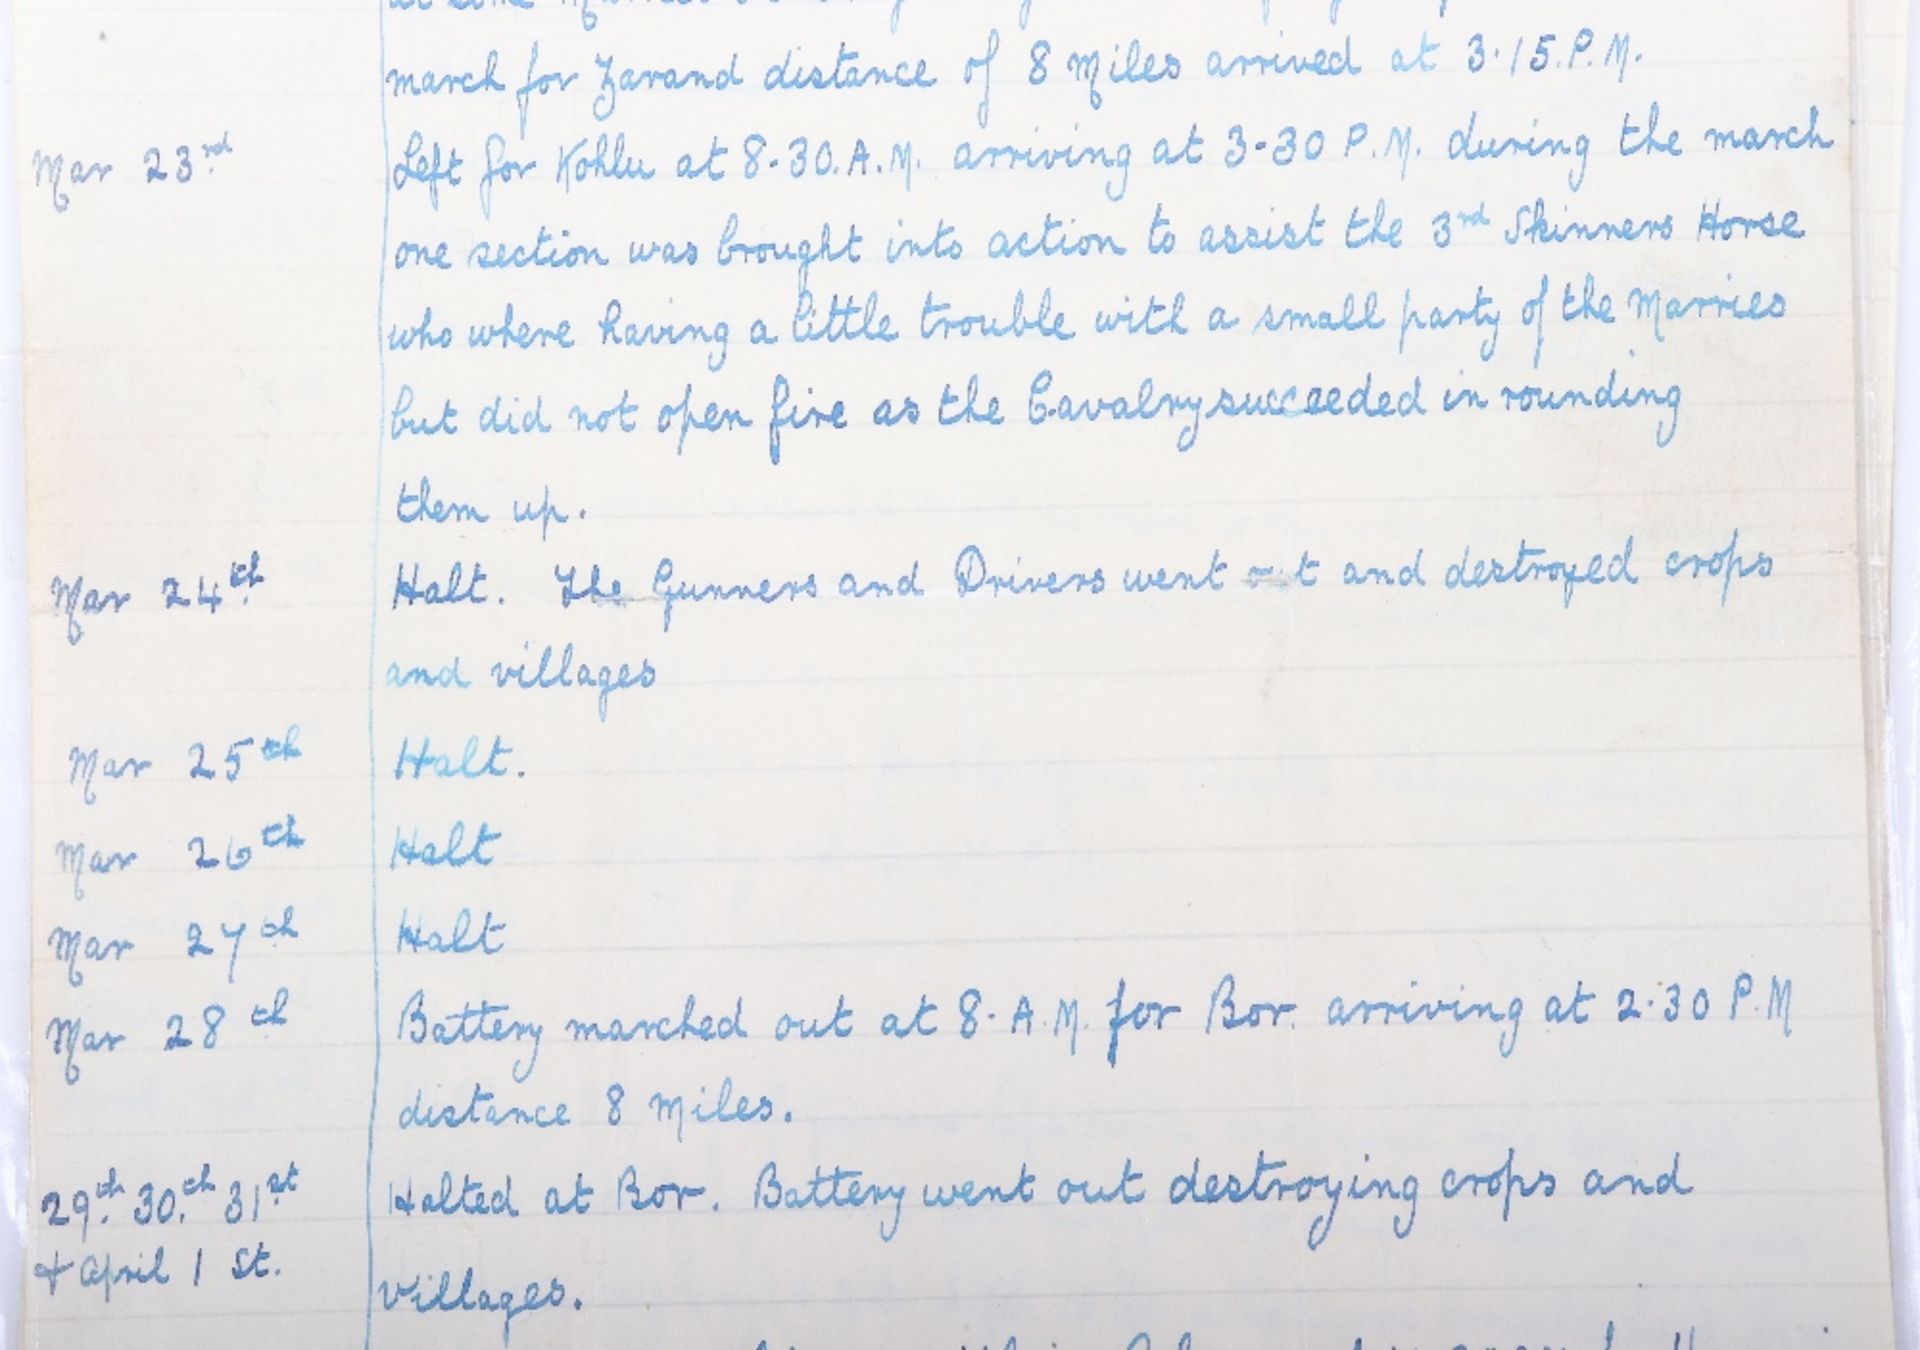 march for Zarand distance of 8 Miles arrived at 3.15.P.M.
Mar 23rd Left for Kohlu at 8-30.A.M. arriving at 3-30 P.M. during the march
one section was brought into action to assist the 3rd Skinners Horse
who where having a little trouble with a small party of the Marries
but did not open fire as the Cavalry succeeded in rounding
them up.
Mar 24th Halt. The Gunners and Drivers went out and destroyed crops
and villages
Mar 25th Halt.
Mar 26th Halt
Mar 27th Halt
Mar 28th Battery marched out at 8. A.M. for Bor. arriving at 2.30 P.M
distance 8 Miles.
29th. 30.th 31st Halted at Bor. Battery went out destroying crops and
+ April 1 St. Villages.